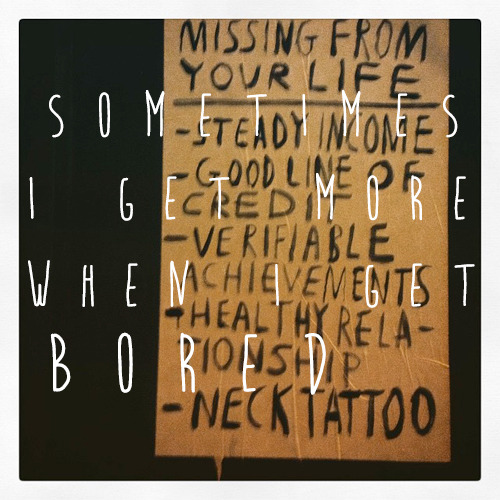 MISSING FROM
YOUR LIFE
-STEADY INCOME
-GOOD LINE OF
CREDIT
-VERIFIABLE
ACHIEVEMENTS
-HEALTHY RELA-
TIONSHIP
-NECK TATTOO
SOMETIMES
I GET MORE
WHEN I GET
BORED